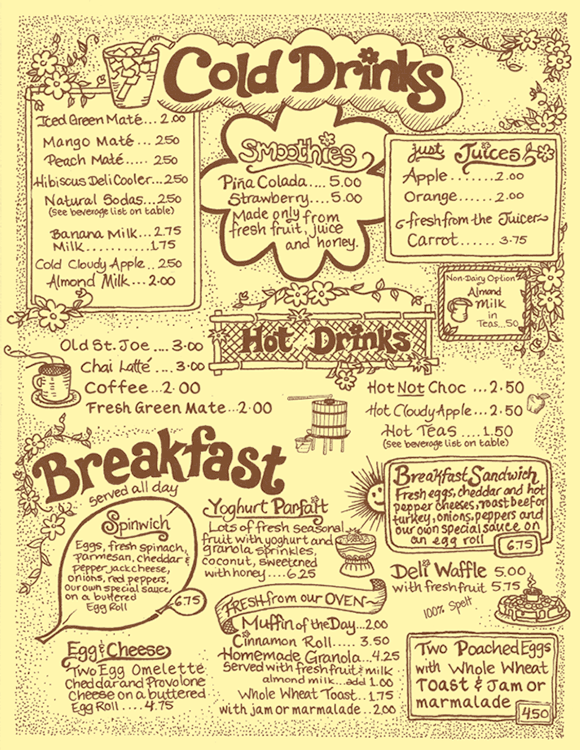 Cold Drinks
Iced Green Maté... 2.00
Mango Maté.... 2.50
Peach Maté..... 2.50
Hibiscus Deli Cooler...2.50
Natural Sodas...2.50
(see beverage list on table)
Banana Milk... 2.75
Milk............ 1.75
Cold Cloudy Apple.. 2.50
Almond Milk... 2.00
Smoothies
Piña Colada.... 5.00
Strawberry.... 5.00
Made only from
fresh fruit, juice
and honey.
just Juices
Apple........2.00
Orange.......2.00
fresh from the Juicer
Carrot...... 3.75
Non-Dairy Option
Almond
Milk
in
Teas...50
Hot Drinks
Old St. Joe .... 3.00
Chai Latté .... 3.00
Coffee .. 2.00
Fresh Green Mate...2.00
Hot Not Choc ... 2.50
Hot Cloudy Apple... 2.50
Hot Teas .... 1.50
(See beverage list on table)
Breakfast
served all day
Spinwich
Eggs, fresh spinach,
parmesan, cheddar &
pepper jack cheese,
onions, red peppers,
our own special sauce,
on a buttered
Egg Roll
6.75
Egg & Cheese
Two Egg Omelette
Cheddar and Provolone
Cheese on a buttered
Egg Roll .... 4.75
Yoghurt Parfait
Lots of fresh seasonal
fruit with yoghurt and
granola sprinkles,
coconut, sweetened
with honey....6.25
FRESH from our OVEN
Muffin of the Day...2.00
Cinnamon Roll..... 3.50
Homemade Granola...4.25
Served with fresh fruit & milk
almond milk...add 1.00
Whole Wheat Toast...1.75
with jam or marmalade .. 2.00
Breakfast Sandwich
Fresh eggs, cheddar and hot
pepper cheeses, roast beef or
turkey, onions, peppers and
our own special sauce on
an egg roll
6.75
Deli Waffle 5.00
with fresh fruit 5.75
100% Spelt
Two Poached Eggs
with Whole Wheat
Toast & Jam or
marmalade
4.50